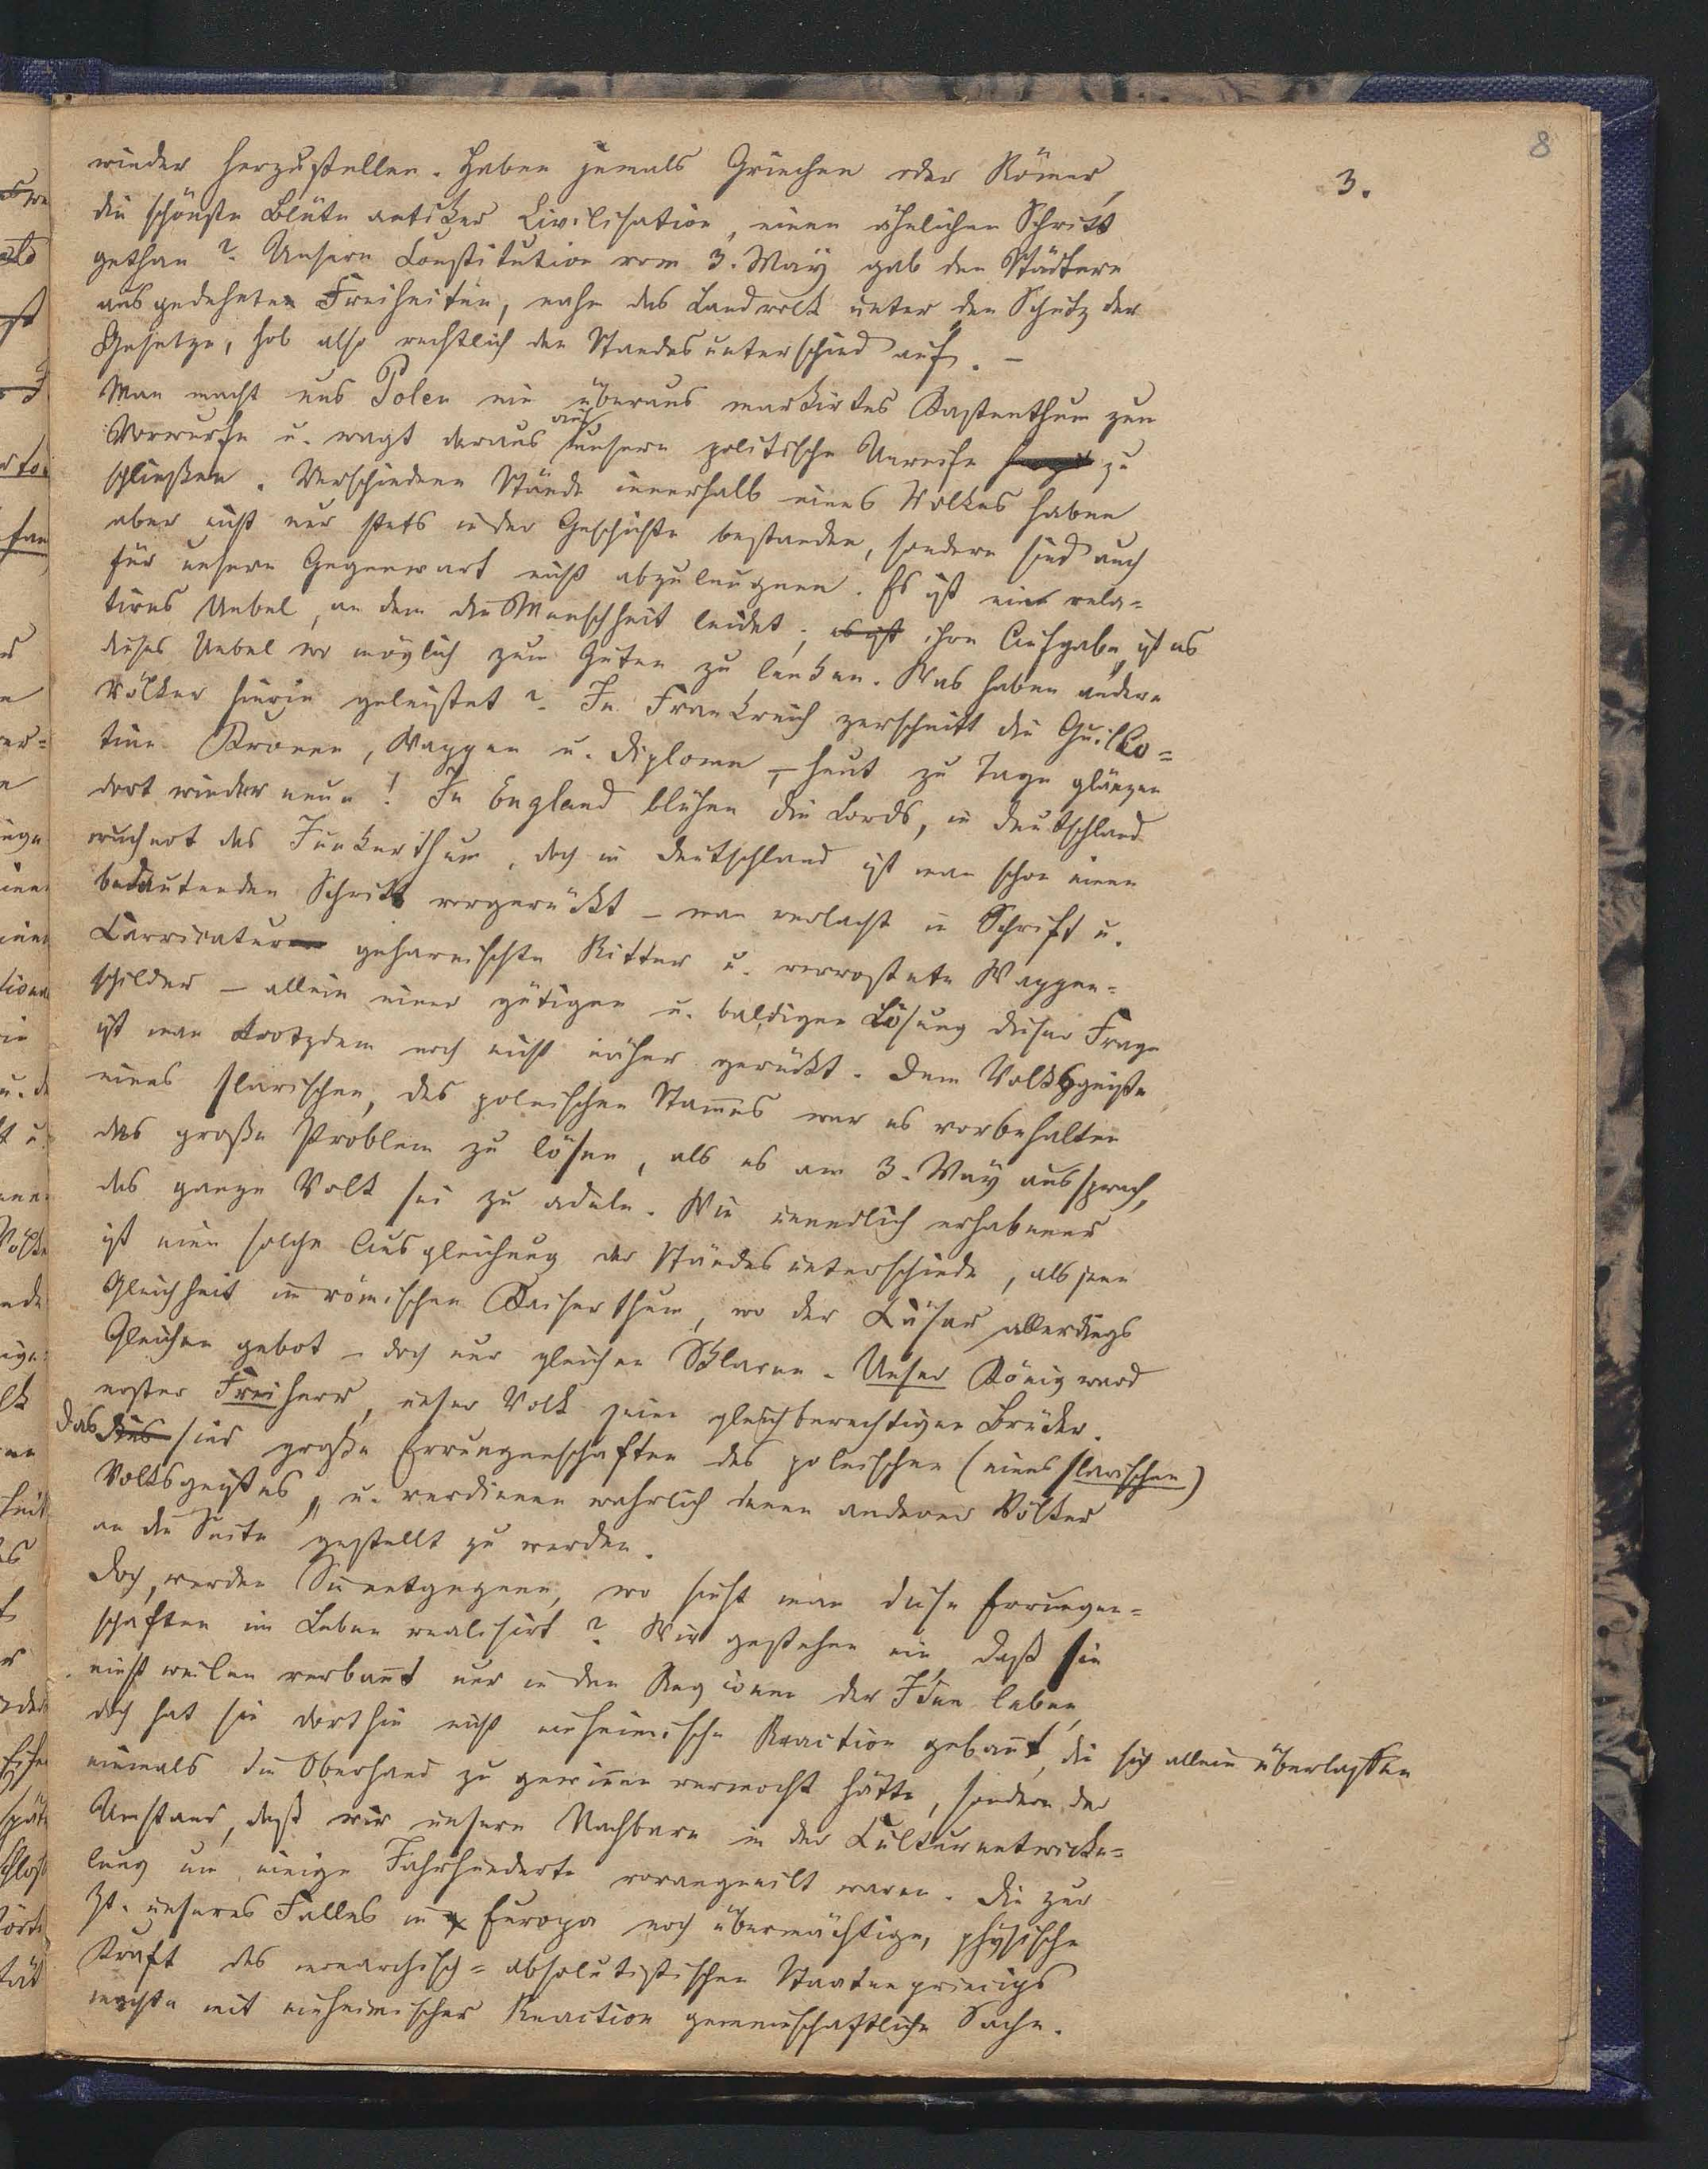 8
3.
wieder herzustellen. Haben jemals Griechen oder Römer,
die schönste Blüte antiker Civilisation, einen ähnlichen Schritt
gethan? Unsere Constitution vom 3. May gab den Städtern
ausgedehnte Freiheiten, nahm das Landvolk unter den Schutz der
Gesetze, hob also rechtlich den Standesunterschied auf. –
Man macht uns Polen ein überaus markirtes Kastenthum zum
Vorwurfe u. wagt daraus auf unsere politische Unreife zu
schließen. Verschiedene Stände innerhalb eines Volkes haben
aber nicht nur stets in der Geschichte bestanden, sondern sind auch
für unsere Gegenwart nicht abzuleugnen. Es ist ein rela=
tives Uebel, an dem die Menschheit leidet; es ist ihre Aufgabe, ist es
dieses Uebel wo möglich zum Guten zu lenken. Was haben andere
Völker hierin geleistet? In Frankreich zerschnitt die Guillo=
tine Kronen, Wappen u. Diplome, – heut zu Tage glänzen
dort wieder neue! In England blühen die Lords, in Deutschland
wuchert das Junkerthum, doch in Deutschland ist man schon einen
bedeutenden Schritt vorgerückt – man verlacht in Schrift u.
Carricatur geharnischte Ritter u. verrostete Wappen=
schilder – allein einer gütigen u. baldigen Lösung dieser Frage
ist man trotzdem noch nicht näher gerückt. Dem Volksgeiste
eines slavischen, des polnischen Stammes war es vorbehalten
das große Problem zu lösen, als es am 3. May aussprach,
das ganze Volk sei zu adeln. Wie unendlich erhabener
ist eine solche Ausgleichung der Standesunterschiede, als jene
Gleichheit im römischen Kaiserthum, wo der Cäsar allerdings
Gleichen gebot – doch nur gleichen Sklaven. Unser König ward
erster Freiherr, unser Volk seine gleichberechtigen Brüder.
Das dies sind große Errungenschaften des polnischen (eines slavischen)
Volksgeistes, u. verdienen wahrlich denen anderer Völker
an die Seite gestellt zu werden.
Doch, werden Sie entgegnen, wo sieht man diese Errungen=
schaften im Leben realisirt? Wir gestehen ein, daß sie
einstweilen verbannt nur in den Regionen der Idee leben,
doch hat sie dorthin nicht einheimische Reaction gebannt, die sich allein überlassen
niemals die Oberhand zu gewinnen vermocht hätte, sondern der
Umstand, daß wir unsern Nachbarn in der Culturentwicke=
lung um einige Jahrhunderte vorangeeilt waren. Die zur
Zt. unseres Falles in Europa noch übermächtige, physische
Kraft des monarchisch=absolutistischen Staatenprincips
machte mit einheimischer Reaction gemeinschaftliche Sache.